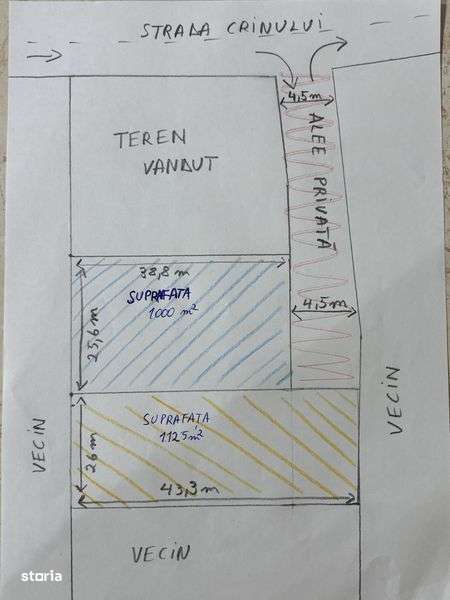 STRADA CRINULUI
4,5 m
ALEE PRIVATĂ
TEREN
VANDUT
38,8 m
SUPRAFATA
1000 m²
25,6 m
4,5 m
SUPRAFAȚA
1125 m²
26 m
43,3 m
VECIN
VECIN
VECIN
storia